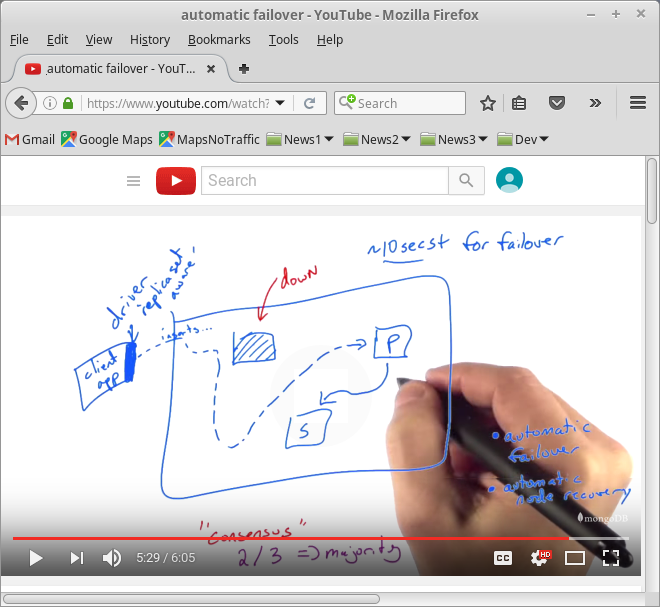 automatic failover - YouTube - Mozilla Firefox
File Edit View History Bookmarks Tools Help
automatic failover - YouT...
https://www.youtube.com/watch?
Search
Gmail Google Maps MapsNoTraffic News1 News2 News3 Dev
Search
~10 secst for failover
driver
replica set
aware
down
inserts...
client
app
P
S
• automatic
failover
• automatic
node recovery
mongoDB
"Consensus"
2/3 => majority
5:29 / 6:05
CC
HD